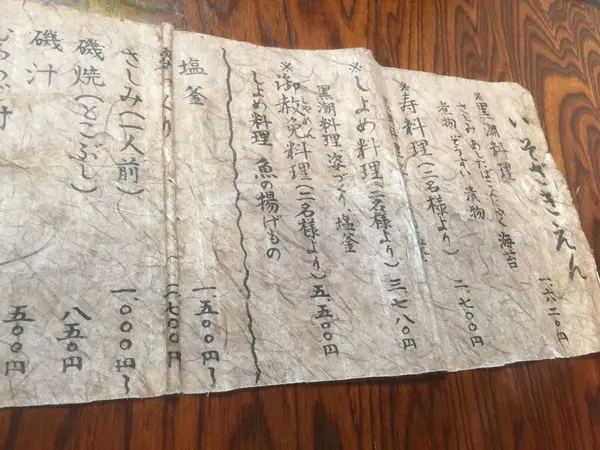 いそざきえん
※黒潮料理 一、六二〇円
さざえ めしたばこんにゃく 海苔
煮物 ぞうすい 漬物
※寿料理(二名様より) 二、七〇〇円
※しよめ料理(二名様より) 三、七八〇円
黒潮料理 姿づくり 塩釜
※御赦免料理(二名様より) 五、五〇〇円
しゃめん
しよめ料理 魚の揚げもの
塩釜 一、五〇〇円
づくり 二、七〇〇円
さしみ(一人前) 一、〇〇〇円〜
磯焼(とこぶし) 八五〇円
磯汁 五〇〇円